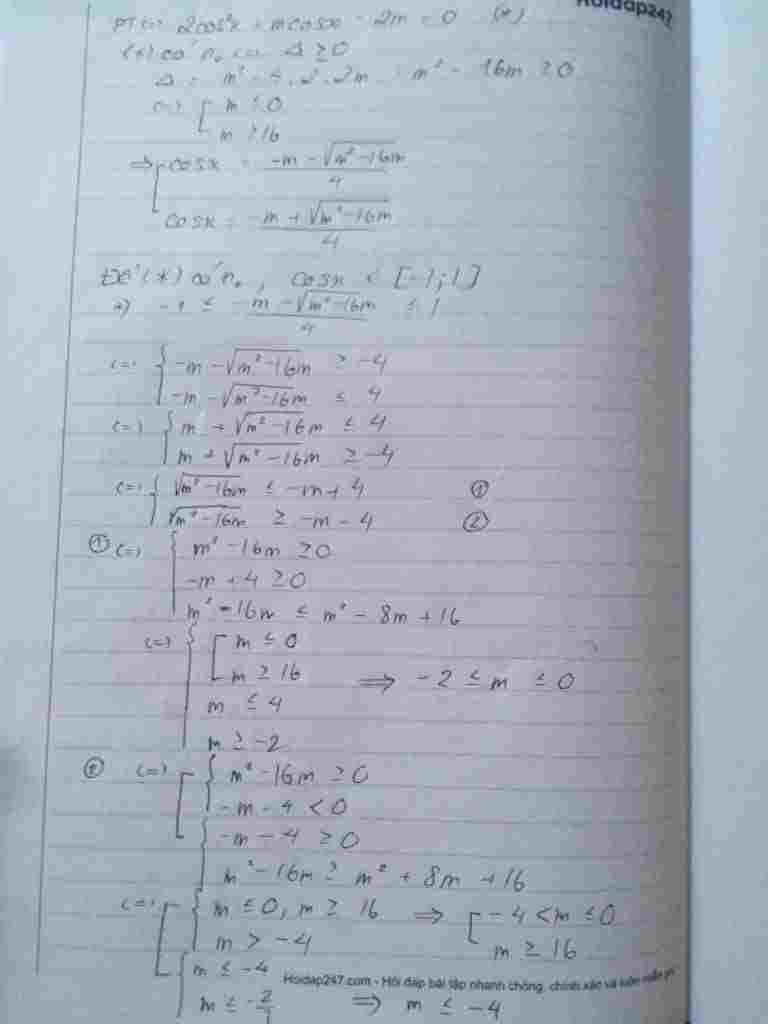 Hoidap247
PT (=) 2cos²x + mcosx - 2m = 0 (*)
(*) có n₀ (=) Δ ≥ 0
Δ = m² - 4.2.2m = m² - 16m ≥ 0
(=) [ m ≤ 0
m ≥ 16
=> [ cosx = (-m - √(m² - 16m))/4
cosx = (-m + √(m² - 16m))/4
Để (*) có n₀, cosx < [-1; 1]
+) -1 ≤ (-m - √(m² - 16m))/4 ≤ 1
(=) { -m - √(m² - 16m) ≥ -4
-m - √(m² - 16m) ≤ 4
(=) { m + √(m² - 16m) ≤ 4
m + √(m² - 16m) ≥ -4
(=) { √(m² - 16m) ≤ -m + 4 ①
√(m² - 16m) ≥ -m - 4 ②
① (=) { m² - 16m ≥ 0
-m + 4 ≥ 0
m² - 16m ≤ m² - 8m + 16
(=) { [ m ≤ 0
m ≥ 16 => -2 ≤ m ≤ 0
m ≤ 4
m ≥ -2
② (=) [ { m² - 16m ≥ 0
-m - 4 < 0
{ -m - 4 ≥ 0
m² - 16m ≥ m² + 8m + 16
(=) [ { m ≤ 0, m ≥ 16 => [ -4 < m ≤ 0
m > -4 m ≥ 16
{ m ≤ -4
Hoidap247.com - Hỏi đáp bài tập nhanh chóng, chính xác và luôn miễn phí
m ≤ -2/ => m ≤ -4